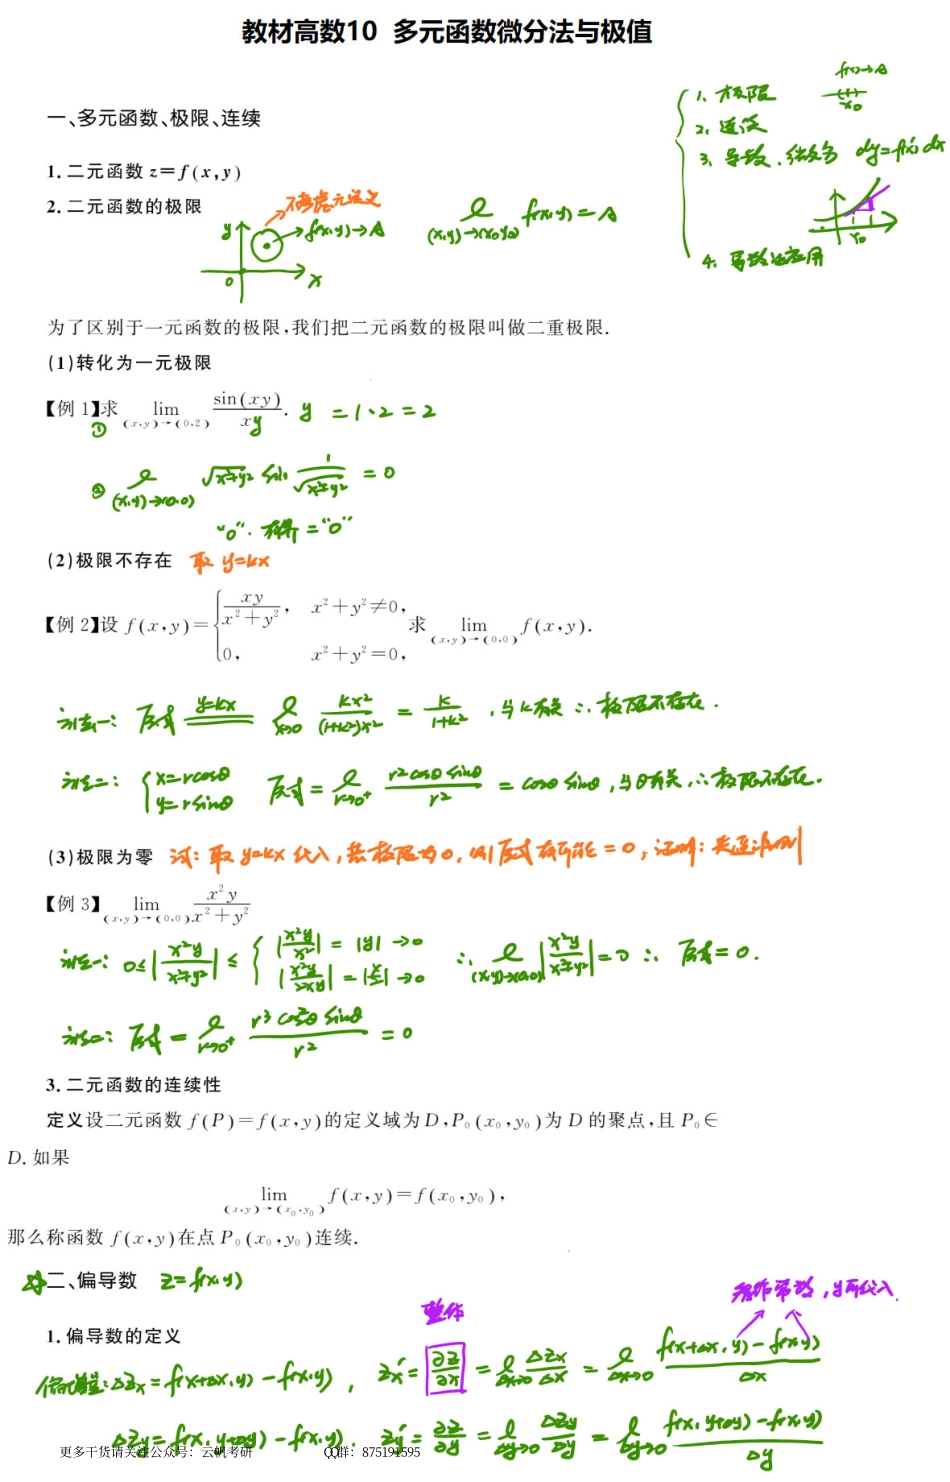 教材高数10 多元函数微分法与极值
一、多元函数、极限、连续
1. 极限 f(x)→A
x₀
2. 连续
3. 导数、微分 dy=f'(x)dx
x₀
4. 导数的应用
1. 二元函数 z=f(x,y)
2. 二元函数的极限
不考虑无定义
y f(x,y)→A
0 x
l (x,y)→(x₀,y₀) f(x,y)=A
为了区别于一元函数的极限,我们把二元函数的极限叫做二重极限.
(1)转化为一元极限
【例 1】求 lim (x,y)→(0,2) sin(xy)/xy · y =1·2=2
①
② l (x,y)→(0,0) √x²+y² sin 1/√x²+y² =0
"0"·有界="0"
(2)极限不存在 取 y=kx
【例 2】设 f(x,y)={ xy/x²+y², x²+y²≠0, 0, x²+y²=0, 求 lim (x,y)→(0,0) f(x,y).
方法一: 原式 y=kx l x→0 kx²/(1+k²)x² = k/1+k² ,与k有关 ∴极限不存在.
方法二: { x=rcosθ y=rsinθ 原式= l r→0⁺ r²cosθsinθ/r² =cosθsinθ,与θ有关,∴极限不存在.
(3)极限为零 试: 取 y=kx 代入,若极限为0,则原式有可能=0,证明:夹逼准则
【例 3】 lim (x,y)→(0,0) x²y/x²+y²
方法一: 0≤|x²y/x²+y²|≤{ |x²y/x²|=|y|→0 |x²y/2xy|=|x/2|→0 ∴ l (x,y)→(0,0) |x²y/x²+y²|=0 ∴ 原式=0.
方法二: 原式= l r→0⁺ r³cos²θsinθ/r² =0
3. 二元函数的连续性
定义设二元函数 f(P)=f(x,y)的定义域为 D,P₀(x₀,y₀)为 D 的聚点,且 P₀∈
D. 如果
lim (x,y)→(x₀,y₀) f(x,y)=f(x₀,y₀),
那么称函数 f(x,y)在点 P₀(x₀,y₀)连续.
二、偏导数 z=f(x,y)
整体
看作常数,y可代入.
1. 偏导数的定义
偏增量: Δzx=f(x+Δx,y)-f(x,y), zx'=∂z/∂x= l Δx→0 Δzx/Δx = l Δx→0 f(x+Δx,y)-f(x,y)/Δx
Δzy=f(x,y+Δy)-f(x,y). zy'=∂z/∂y= l Δy→0 Δzy/Δy = l Δy→0 f(x,y+Δy)-f(x,y)/Δy
更多干货请关注公众号: 云帆考研 QQ群: 875191595